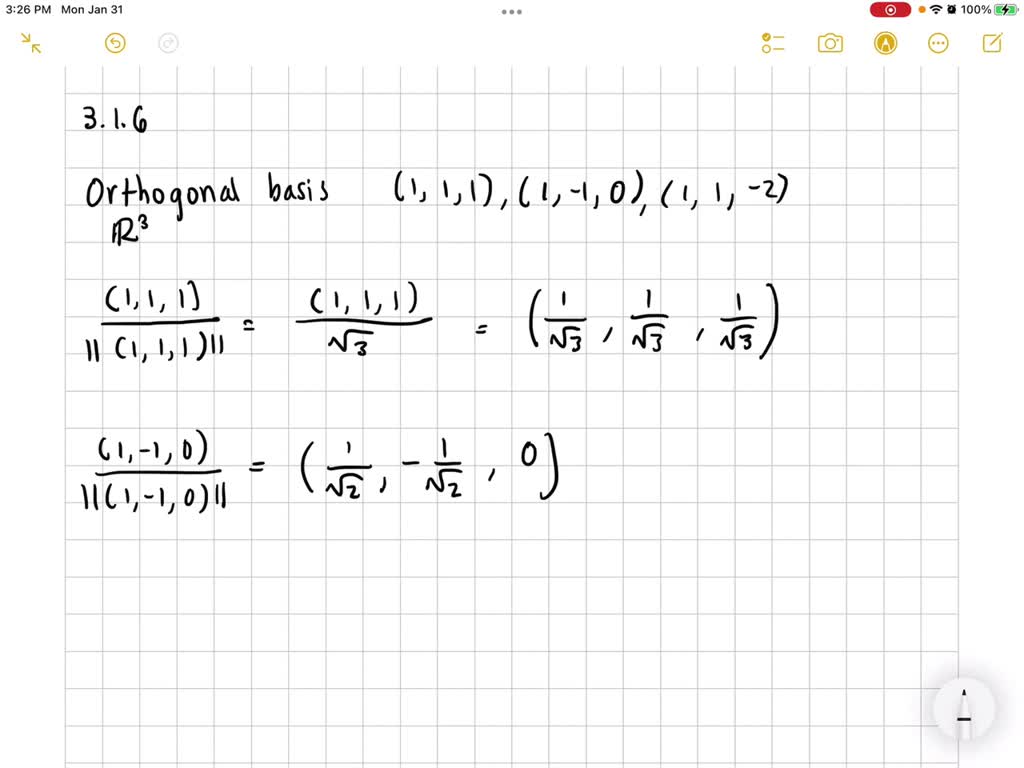 3:26 PM Mon Jan 31
100%
3.1.6
Orthogonal basis (1, 1, 1), (1, -1, 0), (1, 1, -2)
ℝ³
(1, 1, 1] / ||(1, 1, 1)|| = (1, 1, 1) / √3 = (1/√3, 1/√3, 1/√3)
(1, -1, 0) / ||(1, -1, 0)|| = (1/√2, -1/√2, 0]